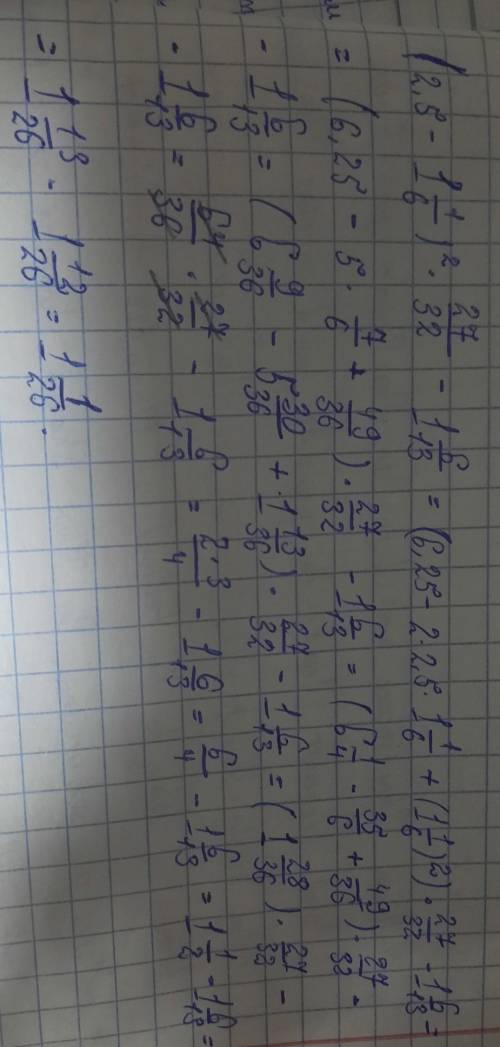 (2,5 - 1 1/6)² · 27/32 - 1 6/13 = (6,25 - 2·2,5·1 1/6 + (1 1/6)²) · 27/32 - 1 6/13 =
= (6,25 - 5 · 7/6 + 49/36) · 27/32 - 1 6/13 = (6 1/4 - 35/6 + 49/36) · 27/32 -
- 1 6/13 = (6 9/36 - 5 30/36 + 1 13/36) · 27/32 - 1 6/13 = (1 28/36) · 27/32 -
- 1 6/13 = 64/36 · 27/32 - 1 6/13 = 2·3/4 - 1 6/13 = 6/4 - 1 6/13 = 1 1/2 - 1 6/13 =
= 1 13/26 - 1 12/26 = 1 1/26.